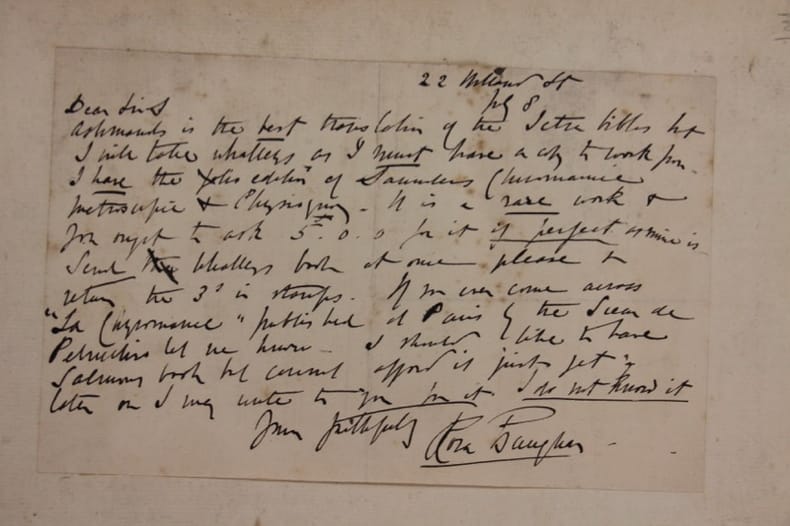 22 Holland St
July 8
Dear Sir
Ashmands is the best translation of the Tetra biblos but
I will take Whalleys as I must have a copy to work from
I have the folio edition of Saunders Chiromancie
Metoscopie & Physiognomy. It is a rare work &
you ought to ask 5.0.0 for it if perfect as mine is
Send Whalleys book at once please &
return the 3s in stamps. If you ever come across
"La Chyromancie" published at Paris by the Sieur de
Peruchio let me know. I should like to have
Salmons book but cannot afford it just yet
later on I may write to you for it I do not know it
Yours faithfully
Rosa Baughan